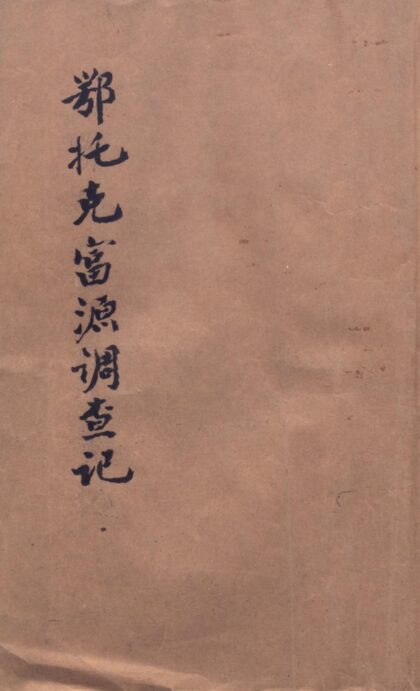 鄂托克富源调查记